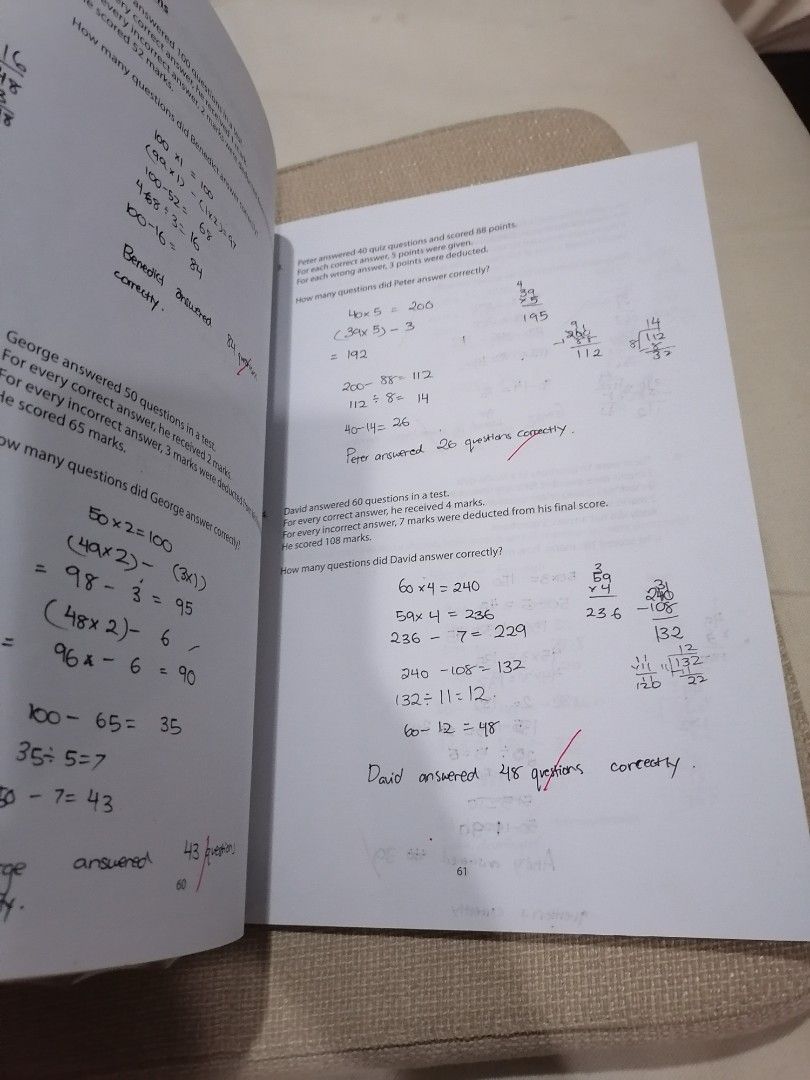 16
48
18
answered 100 questions in a
every correct answer, he received 1
every incorrect answer, 2 marks were deducted
he scored 52 marks.
How many questions did Benedict answer correctly?
100 × 1 = 100
(99 × 1) - (1×2) = 97
100-52 = 68
÷ 3 = 16
100-16 = 84
Benedict answered 84
correctly.
George answered 50 questions in a test.
For every correct answer, he received 2 marks.
For every incorrect answer, 3 marks were deducted
He scored 65 marks.
How many questions did George answer correctly?
50 × 2 = 100
(49×2) - (3×1)
= 98 - 3 = 95
(48×2) - 6
= 96 - 6 = 90
100 - 65 = 35
35 ÷ 5 = 7
50 - 7 = 43
answered 43 questions
60
Peter answered 40 quiz questions and scored 88 points.
For each correct answer, 5 points were given.
For each wrong answer, 3 points were deducted.
How many questions did Peter answer correctly?
40 × 5 = 200
(39×5) - 3
= 192
200 - 88 = 112
112 ÷ 8 = 14
40-14 = 26
Peter answered 26 questions correctly.
4
39
×5
195
112
14
8 112
8
32
David answered 60 questions in a test.
For every correct answer, he received 4 marks.
For every incorrect answer, 7 marks were deducted from his final score.
He scored 108 marks.
How many questions did David answer correctly?
60 × 4 = 240
59 × 4 = 236
236 - 7 = 229
240 - 108 = 132
132 ÷ 11 = 12.
60 - 12 = 48
David answered 48 questions correctly.
3
59
×4
236
240
-108
132
12
11 132
11
22
61